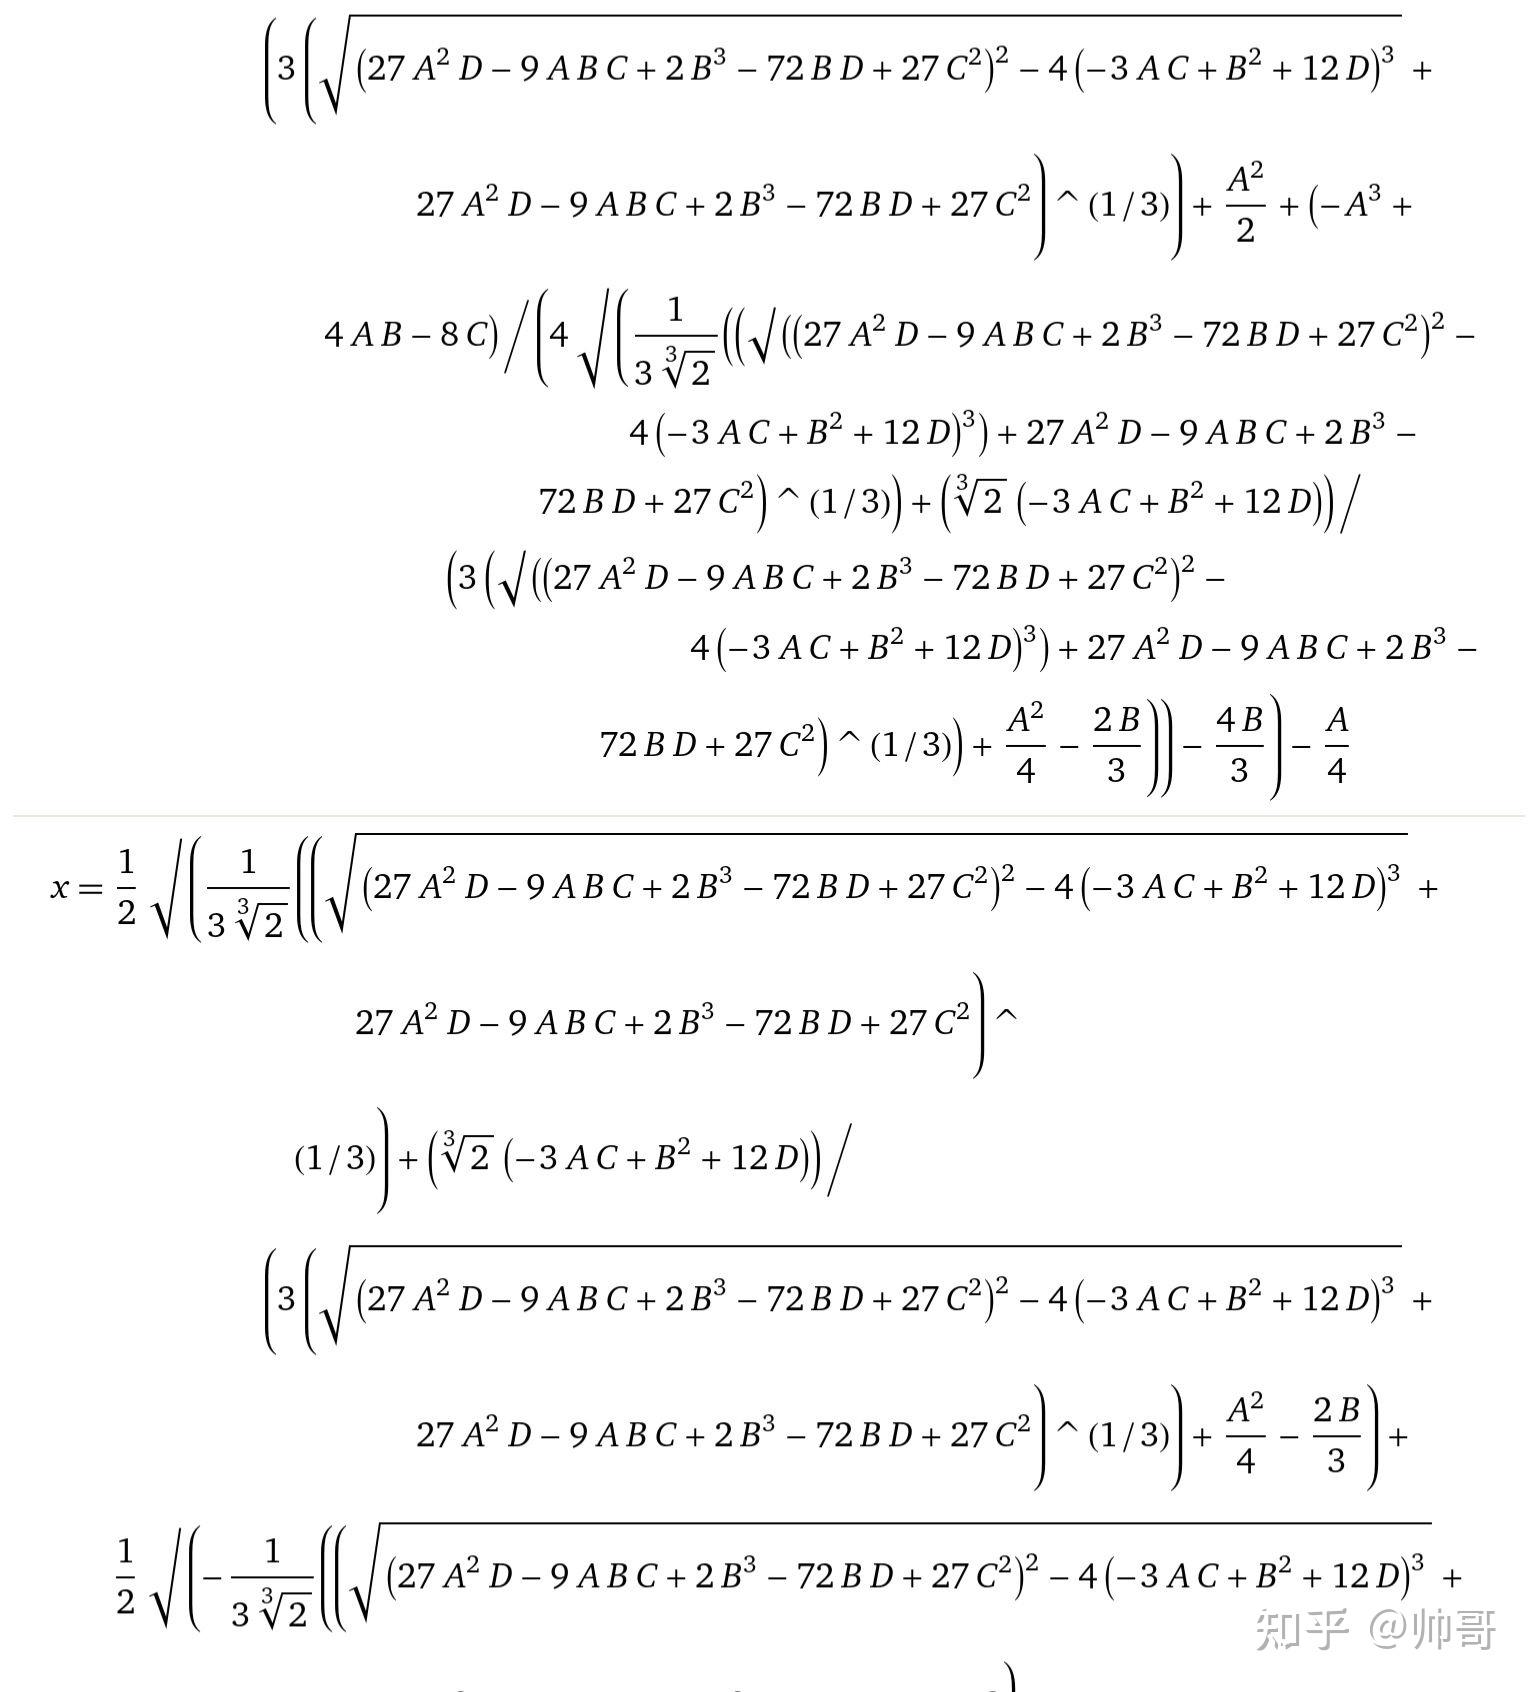 (3 (√((27 A² D − 9 A B C + 2 B³ − 72 B D + 27 C²)² − 4 (−3 A C + B² + 12 D)³) +
27 A² D − 9 A B C + 2 B³ − 72 B D + 27 C²) ^ (1/3)) + A²/2 + (−A³ +
4 A B − 8 C) / (4 √(1/(3 ∛2) ((√((27 A² D − 9 A B C + 2 B³ − 72 B D + 27 C²)² −
4 (−3 A C + B² + 12 D)³) + 27 A² D − 9 A B C + 2 B³ −
72 B D + 27 C²) ^ (1/3)) + (∛2 (−3 A C + B² + 12 D)) /
(3 (√((27 A² D − 9 A B C + 2 B³ − 72 B D + 27 C²)² −
4 (−3 A C + B² + 12 D)³) + 27 A² D − 9 A B C + 2 B³ −
72 B D + 27 C²) ^ (1/3)) + A²/4 − 2 B/3)) − 4 B/3) − A/4
x = 1/2 √(1/(3 ∛2) ((√((27 A² D − 9 A B C + 2 B³ − 72 B D + 27 C²)² − 4 (−3 A C + B² + 12 D)³) +
27 A² D − 9 A B C + 2 B³ − 72 B D + 27 C²) ^
(1/3)) + (∛2 (−3 A C + B² + 12 D)) /
(3 (√((27 A² D − 9 A B C + 2 B³ − 72 B D + 27 C²)² − 4 (−3 A C + B² + 12 D)³) +
27 A² D − 9 A B C + 2 B³ − 72 B D + 27 C²) ^ (1/3)) + A²/4 − 2 B/3) +
1/2 √(− 1/(3 ∛2) ((√((27 A² D − 9 A B C + 2 B³ − 72 B D + 27 C²)² − 4 (−3 A C + B² + 12 D)³) +
知乎 @帅哥